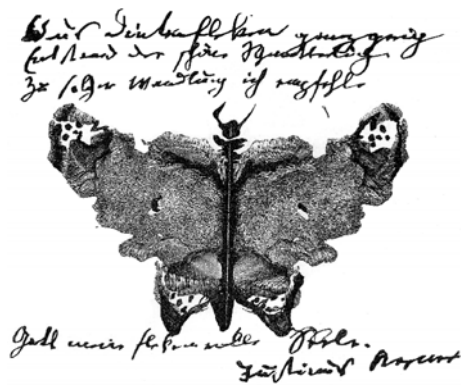 Aus Dintenflecken ganz gering
Entstand der schöne Schmetterling
Zu solcher Wandlung ich empfehle
Gott meine fleckenvolle Seele.
Justinus Kerner